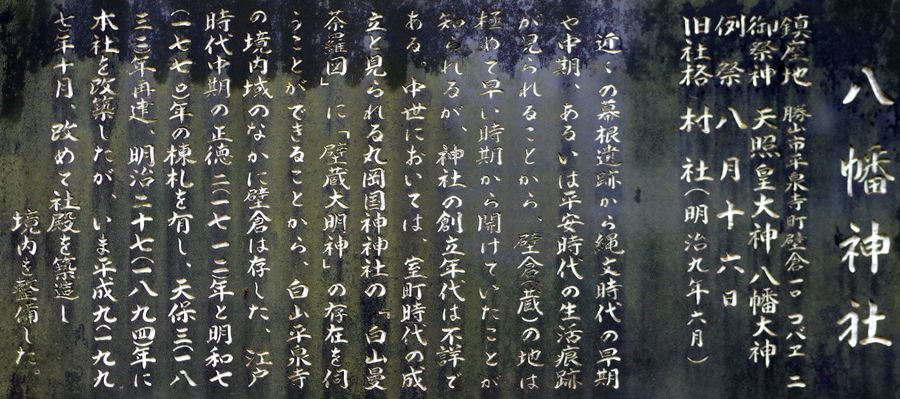 八幡神社
鎮座地 勝山市平泉寺町壁倉一〇 コバヱ 二
御祭神 天照皇大神 八幡大神
例祭 八月十六日
旧社格 村社(明治九年六月)
近くの幕根遺跡から縄文時代の早期
や中期、あるいは平安時代の生活痕跡
が見られることから、壁倉(蔵)の地は
極めて早い時期から開けていたことが
知られるが、神社の創立年代は不詳で
ある。中世においては、室町時代の成
立と見られる丸岡国神神社の「白山曼
荼羅図」に「壁蔵大明神」の存在を伺
うことができることから、白山平泉寺
の境内域のなかに壁倉は存した、江戸
時代中期の正徳二(一七一二)年と明和七
(一七七〇)年の棟札を有し、天保三(一八
三二)年再建、明治二十七(一八九四)年に
本社を改築したが、いま平成九(一九九
七)年十月、改めて社殿を築造し
境内を整備した。